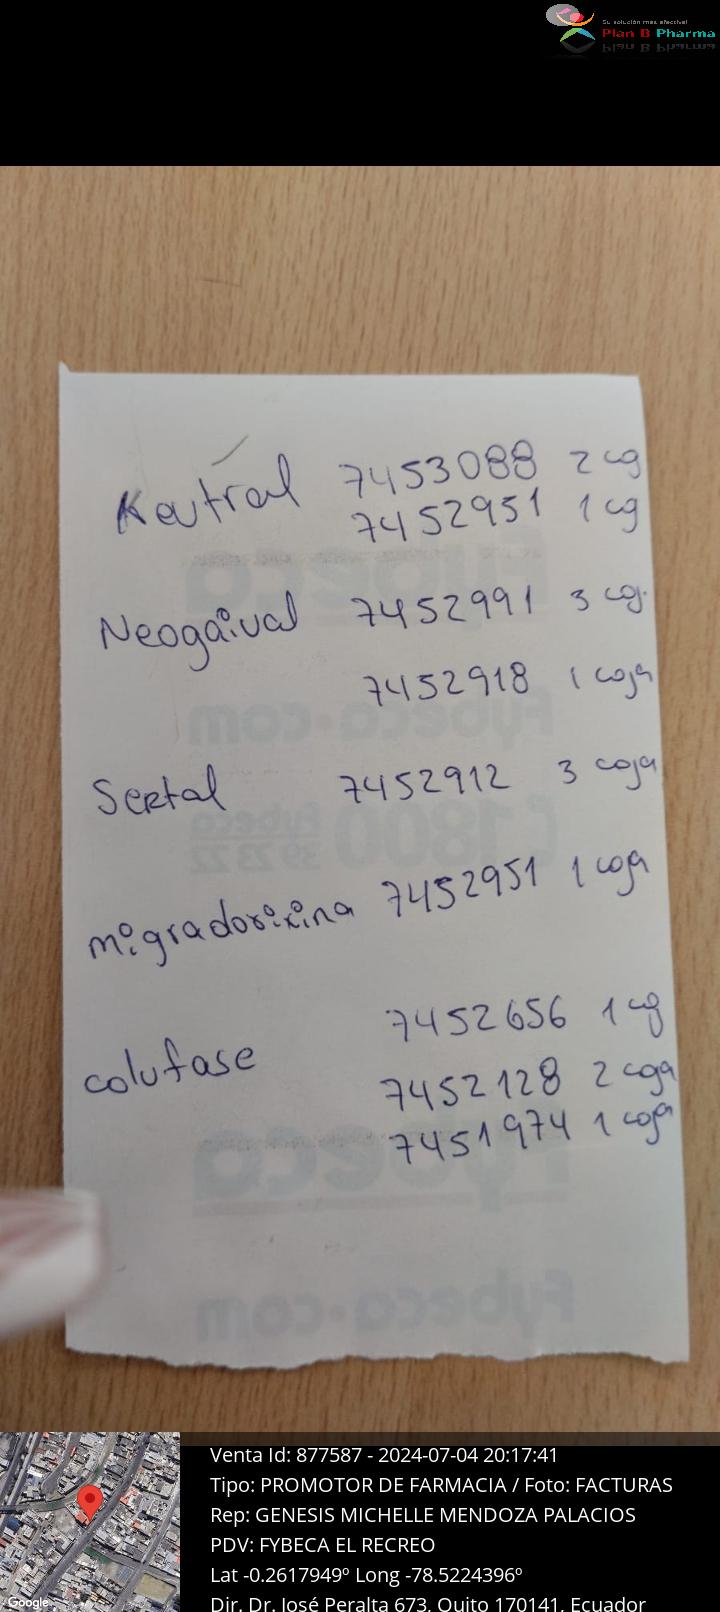 Su solución más efectiva!
Plan B Pharma
Keutral 7453088 2 cg
7452951 1 cg
Neogaival 7452991 3 cg.
7452918 1 coja
Sertal 7452912 3 coja
migradorixina 7452951 1 coja
colufase 7452656 1 cg
7452128 2 coga
7451974 1 coja
Fybeca
Fybeca.com
1800 Fybeca
39 23 22
Fybeca
Fybeca.com
Google
Venta Id: 877587 - 2024-07-04 20:17:41
Tipo: PROMOTOR DE FARMACIA / Foto: FACTURAS
Rep: GENESIS MICHELLE MENDOZA PALACIOS
PDV: FYBECA EL RECREO
Lat -0.2617949º Long -78.5224396º
Dir. Dr. José Peralta 673, Quito 170141, Ecuador